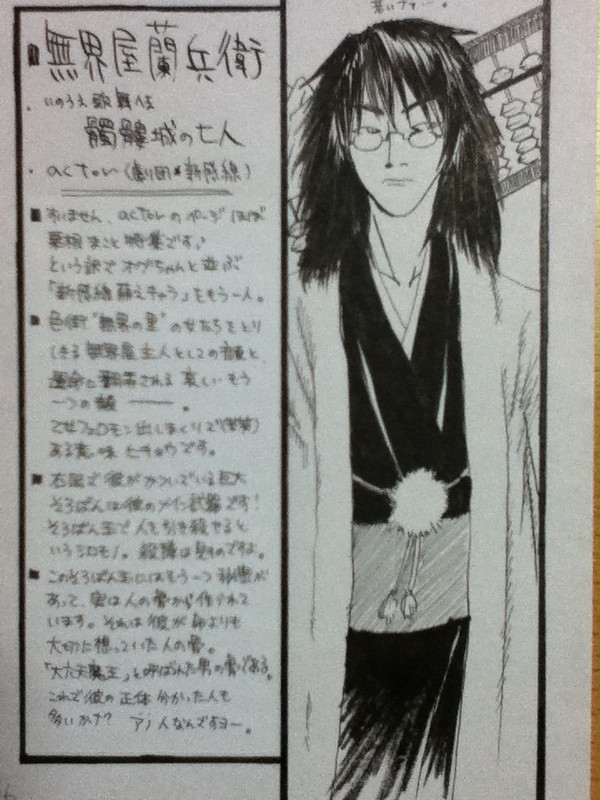 若いナァ…。
無界屋蘭兵衛
いのうえ歌舞伎
髑髏城の七人
actor(劇団★新感線)
すいません、actorのページほぼ
粟根まこと特集です。
という訳でオグちゃんと並ぶ
「新感線萌えキャラ」をもう一人。
色街"無界の里"の女たちをとり
しきる無界屋主人としての顔と、
運命に翻弄される哀しいもう
一つの顔 ――。
乙女フェロモン出しまくりで(笑)
ある意味ヒキョウです。
右図で彼がかついでいる巨大
そろばんは彼のメイン武器です!
そろばん玉で人も引き殺せると
いうシロモノ。殺陣は見ものですよ。
このそろばん玉にはもう一つ秘密が
あって、実は人の骨から作られて
います。それは彼が命よりも
大切に想っていた人の骨。
「大六天魔王」と呼ばれた男の骨である。
これで彼の正体分かった人も
多いかナ? アノ人なんですヨー。